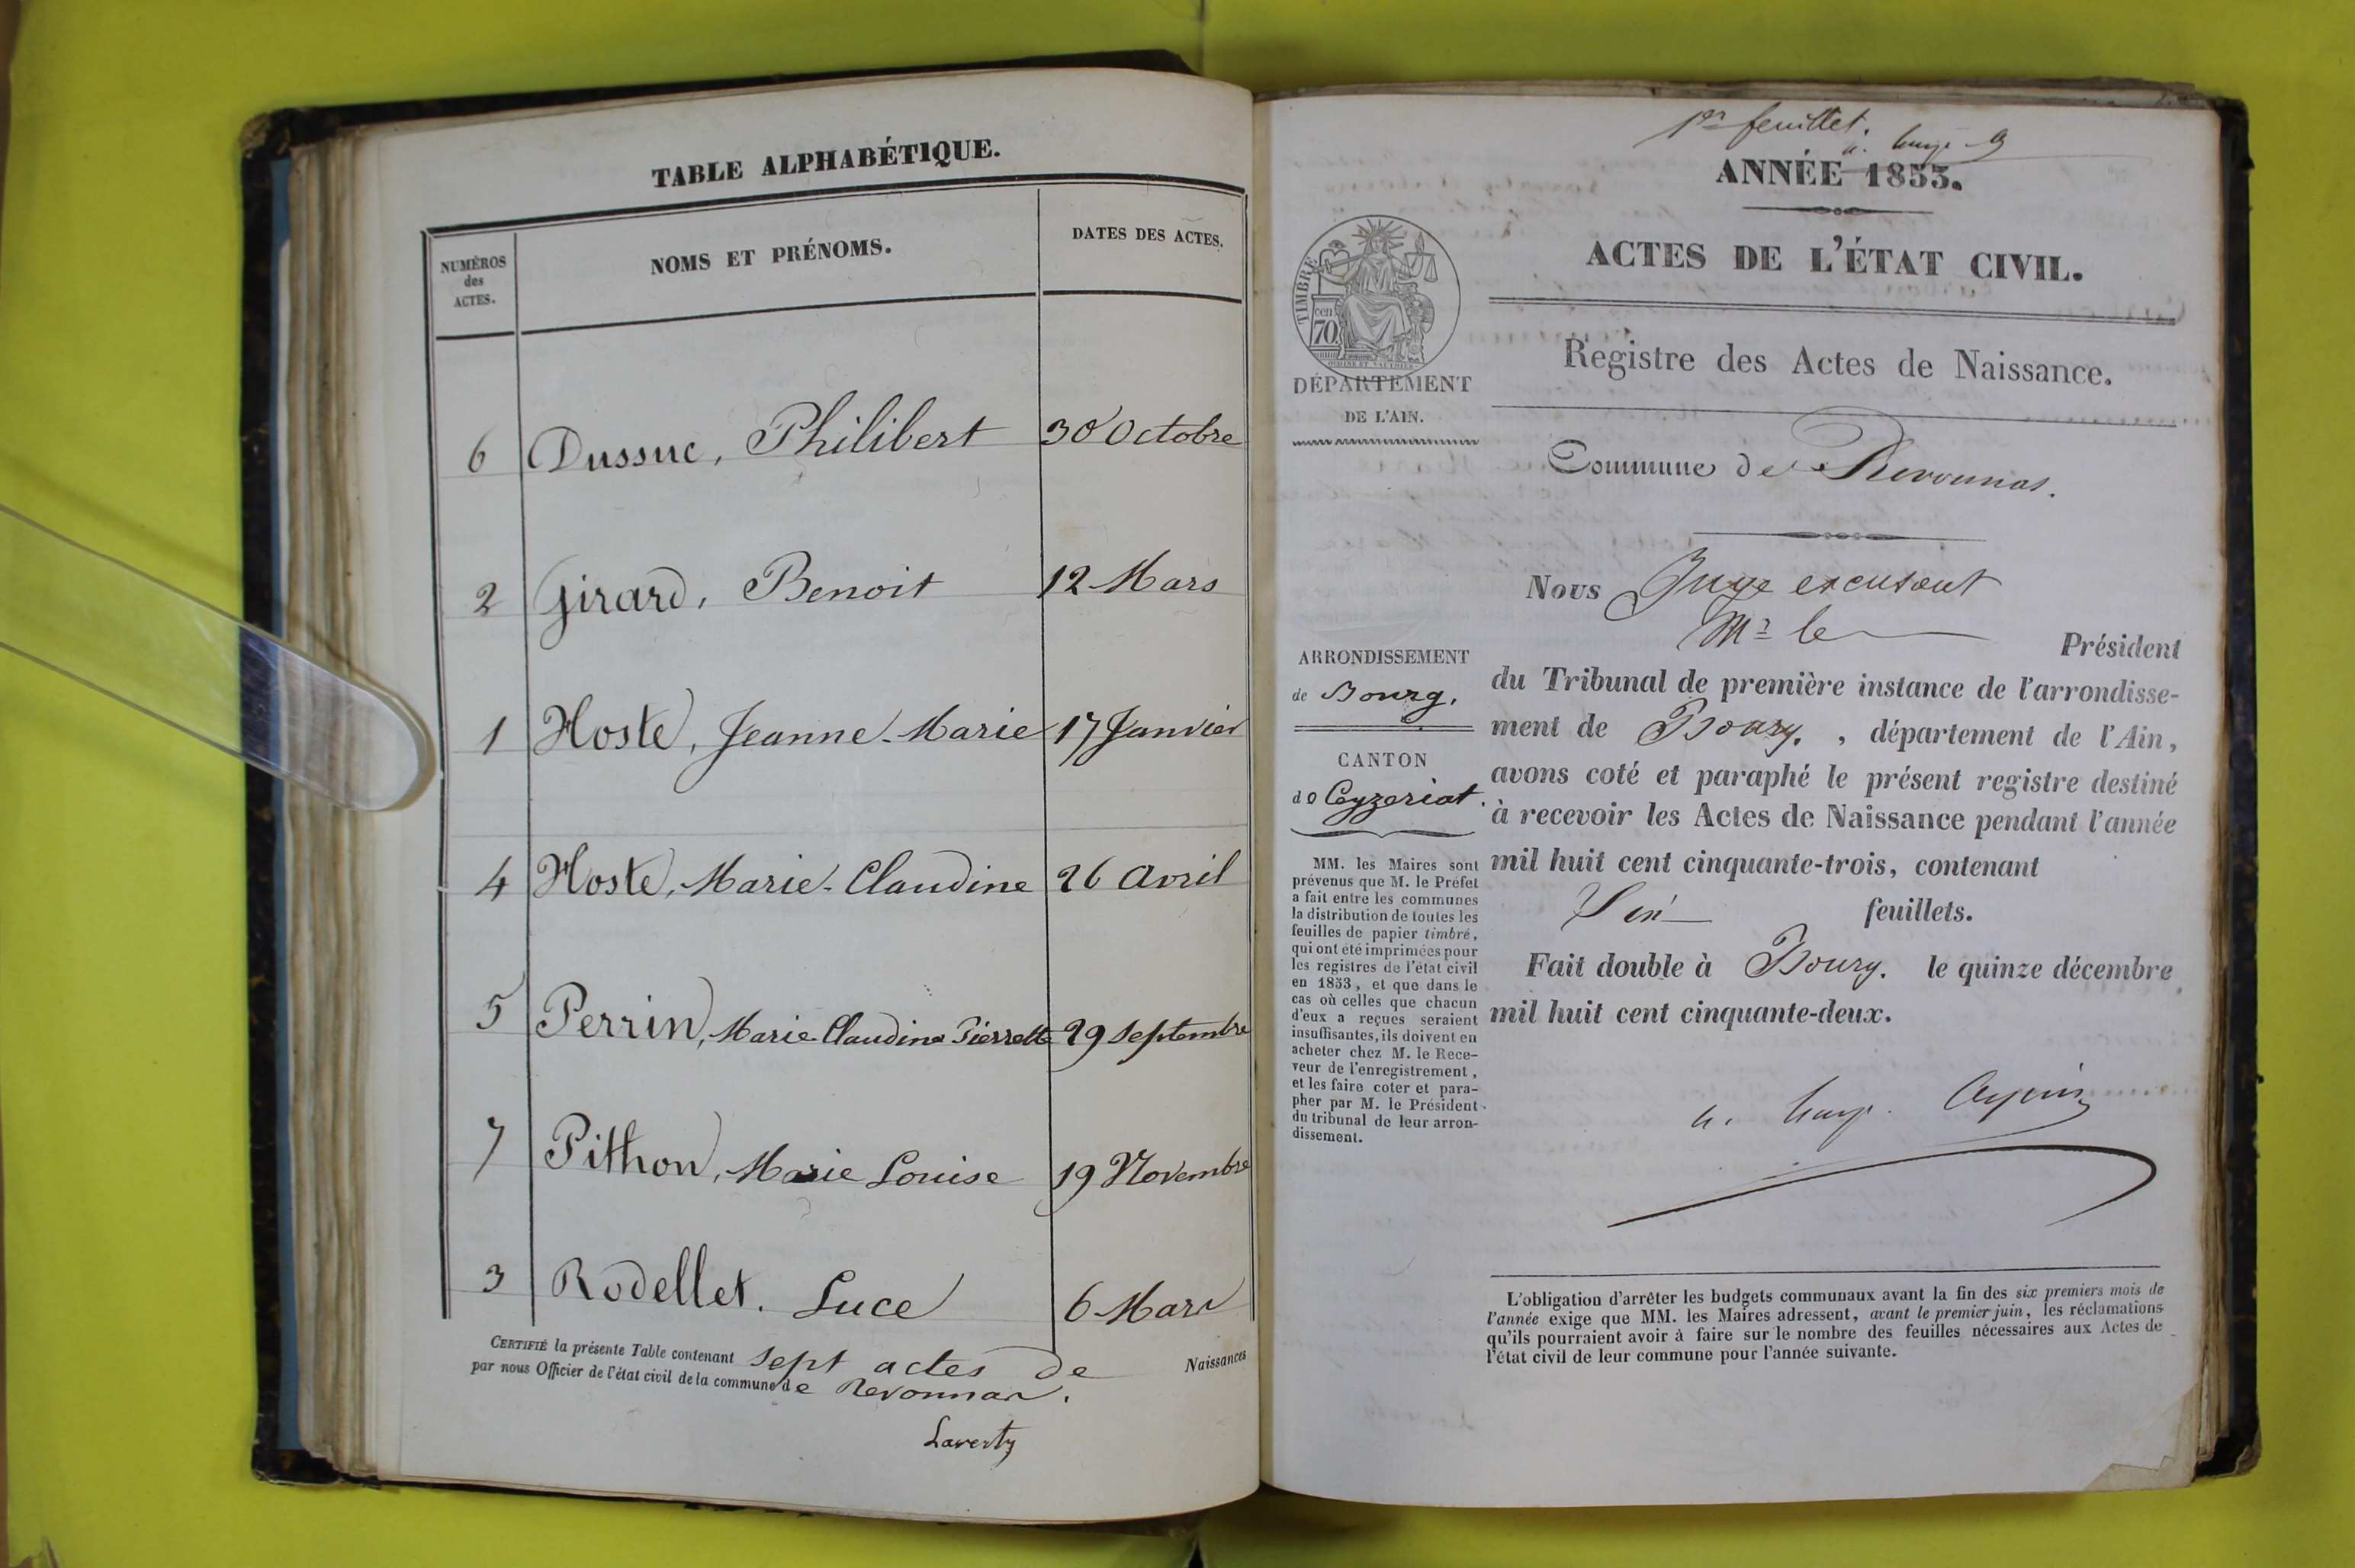 TABLE ALPHABÉTIQUE.
NUMÉROS des ACTES.
NOMS ET PRÉNOMS.
DATES DES ACTES.
6 Dussuc, Philibert 30 Octobre
2 Girard, Benoit 12 Mars
1 Hoste, Jeanne-Marie 17 Janvier
4 Hoste, Marie-Claudine 26 Avril
5 Perrin, Marie Claudine Pierrette 29 Septembre
7 Pithon, Marie Louise 19 Novembre
3 Rodellet. Luce 6 Mars
CERTIFIÉ la présente Table contenant sept actes de Naissances
par nous Officier de l'état civil de la commune de Revonnas.
Laverty
1er feuillet.
ANNÉE 1853.
ACTES DE L'ÉTAT CIVIL.
TIMBRE
cen
70
DÉPARTEMENT
DE L'AIN.
Registre des Actes de Naissance.
Commune de Revonnas.
Nous Juge excusant
Mr le Président
du Tribunal de première instance de l'arrondisse-
ment de Bourg. , département de l'Ain,
avons coté et paraphé le présent registre destiné
à recevoir les Actes de Naissance pendant l'année
mil huit cent cinquante-trois, contenant
feuillets.
Fait double à Bourg. le quinze décembre
mil huit cent cinquante-deux.
ARRONDISSEMENT
de Bourg.
CANTON
de Ceyzeriat.
MM. les Maires sont
prévenus que M. le Préfet
a fait entre les communes
la distribution de toutes les
feuilles de papier timbré,
qui ont été imprimées pour
les registres de l'état civil
en 1853, et que dans le
cas où celles que chacun
d'eux a reçues seraient
insuffisantes, ils doivent en
acheter chez M. le Rece-
veur de l'enregistrement,
et les faire coter et para-
pher par M. le Président
du tribunal de leur arron-
dissement.
L'obligation d'arrêter les budgets communaux avant la fin des six premiers mois de
l'année exige que MM. les Maires adressent, avant le premier juin, les réclamations
qu'ils pourraient avoir à faire sur le nombre des feuilles nécessaires aux Actes de
l'état civil de leur commune pour l'année suivante.